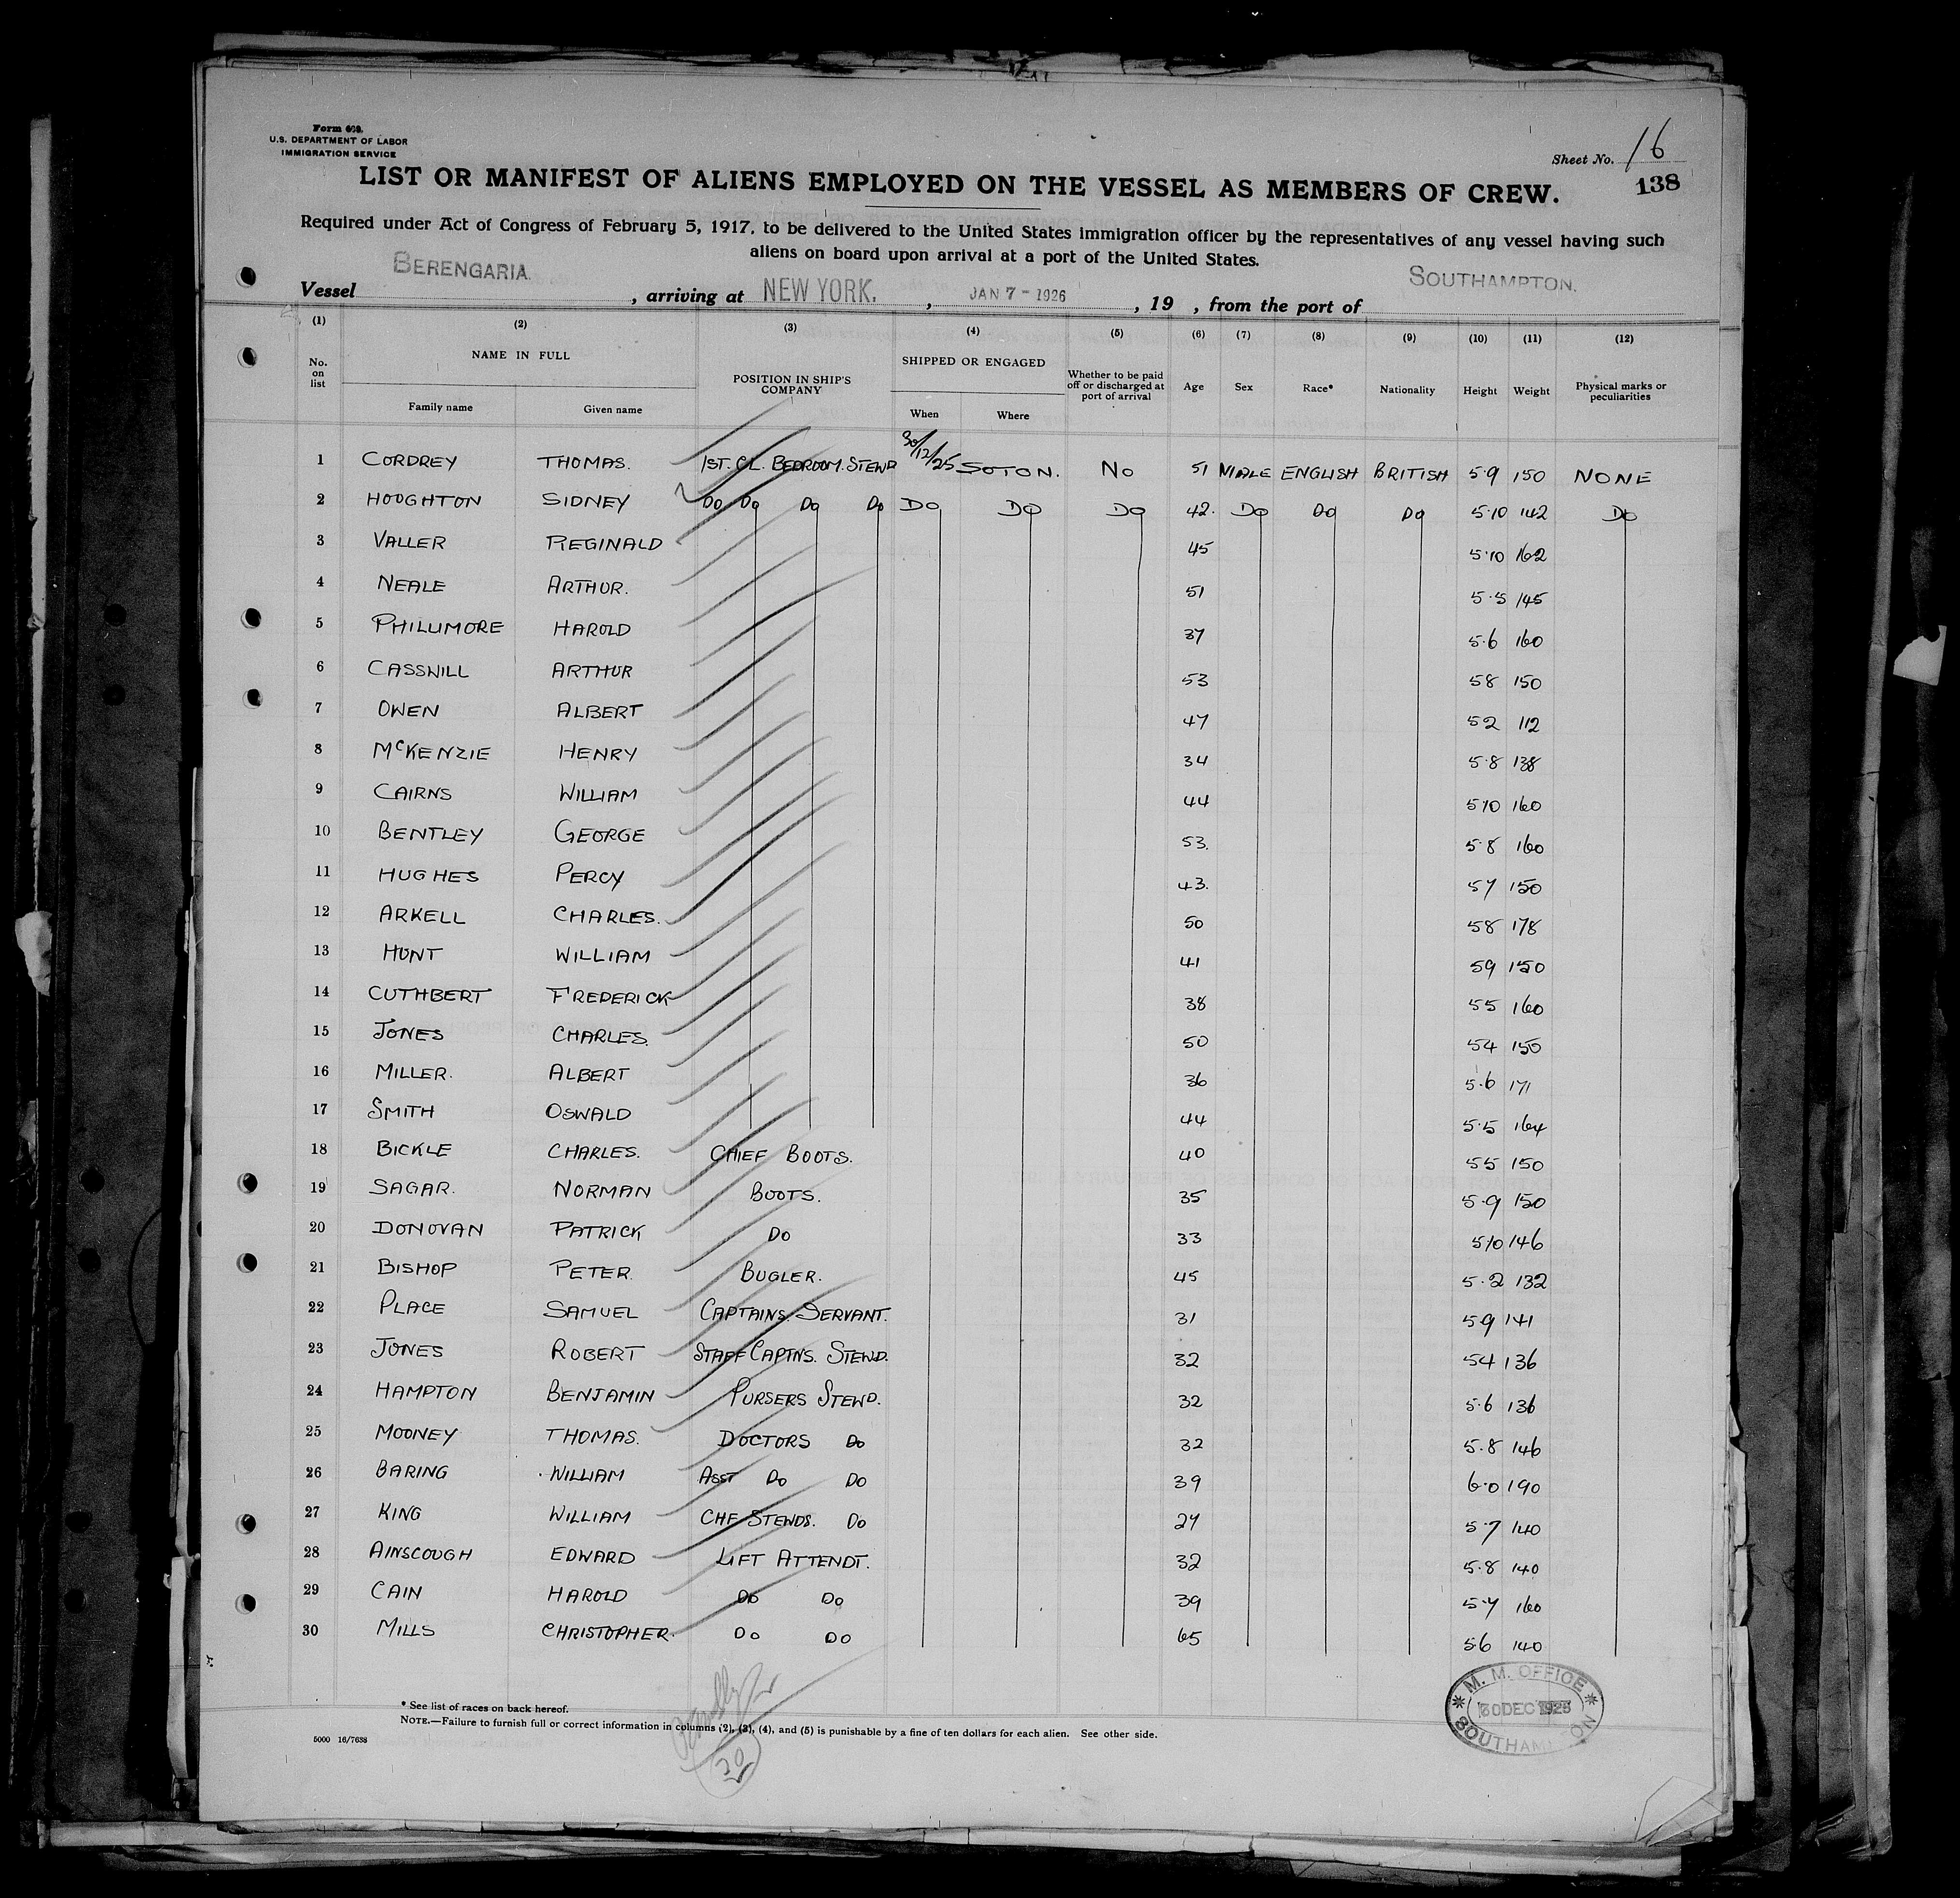 Form 689.
U.S. DEPARTMENT OF LABOR
IMMIGRATION SERVICE
Sheet No. 16
138
LIST OR MANIFEST OF ALIENS EMPLOYED ON THE VESSEL AS MEMBERS OF CREW.
Required under Act of Congress of February 5, 1917, to be delivered to the United States immigration officer by the representatives of any vessel having such
aliens on board upon arrival at a port of the United States.
Vessel BERENGARIA, arriving at NEW YORK., JAN 7 - 1926, 19 , from the port of SOUTHAMPTON.
(1) (2) (3) (4) (5) (6) (7) (8) (9) (10) (11) (12)
No. on list NAME IN FULL Family name Given name POSITION IN SHIP'S COMPANY SHIPPED OR ENGAGED When Where Whether to be paid off or discharged at port of arrival Age Sex Race* Nationality Height Weight Physical marks or peculiarities
1 CORDREY THOMAS. 1ST. CL. BEDROOM. STEWD 30/12/25 SOTON. NO 51 MALE ENGLISH BRITISH 5·9 150 NONE
2 HOUGHTON SIDNEY DO DO DO DO DO DO DO 42. DO DO DO 5·10 142 DO
3 VALLER REGINALD 45 5·10 162
4 NEALE ARTHUR. 51 5·5 145
5 PHILLIMORE HAROLD 37 5·6 160
6 CASSWILL ARTHUR 53 58 150
7 OWEN ALBERT 47 52 112
8 McKENZIE HENRY 34 5·8 138
9 CAIRNS WILLIAM 44 510 160
10 BENTLEY GEORGE 53. 5·8 160
11 HUGHES PERCY 43. 57 150
12 ARKELL CHARLES. 50 58 178
13 HUNT WILLIAM 41 59 150
14 CUTHBERT FREDERICK 38 55 160
15 JONES CHARLES. 50 54 150
16 MILLER. ALBERT 36 5·6 171
17 SMITH OSWALD 44 5·5 164
18 BICKLE CHARLES. CHIEF BOOTS. 40 55 150
19 SAGAR. NORMAN BOOTS. 35 5·9 150
20 DONOVAN PATRICK DO 33 510 146
21 BISHOP PETER. BUGLER. 45 5·2 132
22 PLACE SAMUEL CAPTAINS. SERVANT. 31 59 141
23 JONES ROBERT STAFF CAPTNS. STEWD. 32 54 136
24 HAMPTON BENJAMIN PURSERS STEWD. 32 5·6 136
25 MOONEY THOMAS. DOCTORS DO 32 5·8 146
26 BARING WILLIAM ASST DO DO 39 6·0 190
27 KING WILLIAM CHF STEWDS. DO 27 5·7 140
28 AINSCOUGH EDWARD LIFT ATTENDT. 32 5·8 140
29 CAIN HAROLD DO DO 39 5·7 160
30 MILLS CHRISTOPHER. DO DO 65 56 140
* See list of races on back hereof.
NOTE.—Failure to furnish full or correct information in columns (2), (3), (4), and (5) is punishable by a fine of ten dollars for each alien. See other side.
5000 16/7638
30
M. M. OFFICE
30 DEC 1925
SOUTHAMPTON